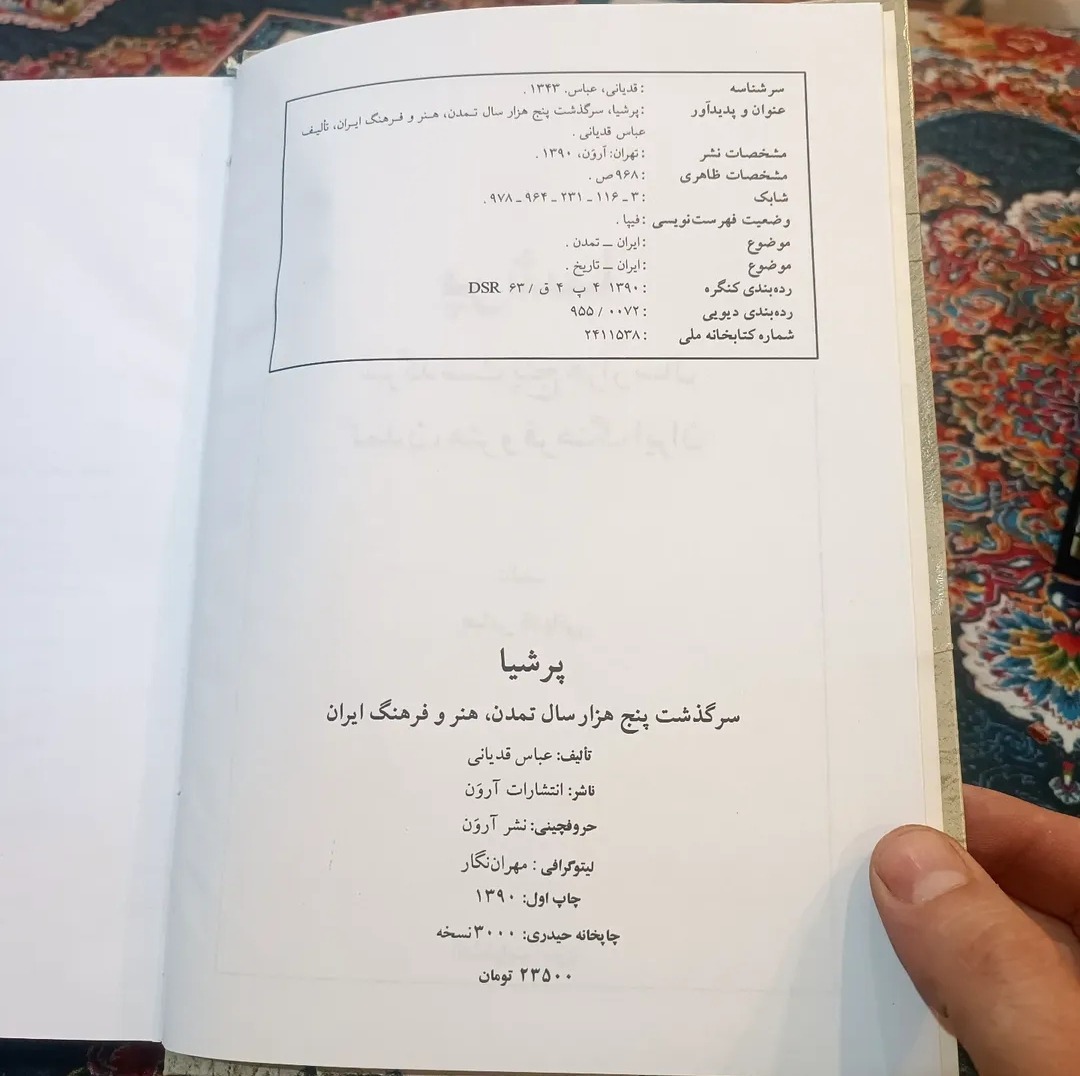 سرشناسه : قدیانی، عباس. ۱۳۴۳ .
عنوان و پدیدآور : پرشیا، سرگذشت پنج هزار سال تمدن، هنر و فرهنگ ایران، تألیف
عباس قدیانی .
مشخصات نشر : تهران: آروَن، ۱۳۹۰ .
مشخصات ظاهری : ۹۶۸ص .
شابک : ۳ ـ ۱۱۶ ـ ۲۳۱ ـ ۹۶۴ ـ ۹۷۸ .
وضعیت فهرست‌نویسی : فیپا .
موضوع : ایران ــ تمدن .
موضوع : ایران ــ تاریخ .
رده‌بندی کنگره : ۱۳۹۰ ۴ پ ۴ ق / ۶۳ DSR
رده‌بندی دیویی : ۰۰۷۲ / ۹۵۵
شماره کتابخانه ملی : ۲۴۱۱۵۳۸
پرشیا
سرگذشت پنج هزار سال تمدن، هنر و فرهنگ ایران
تألیف: عباس قدیانی
ناشر: انتشارات آروَن
حروفچینی: نشر آروَن
لیتوگرافی : مهران‌نگار
چاپ اول: ۱۳۹۰
چاپخانه حیدری: ۳۰۰۰ نسخه
۲۳۵۰۰ تومان